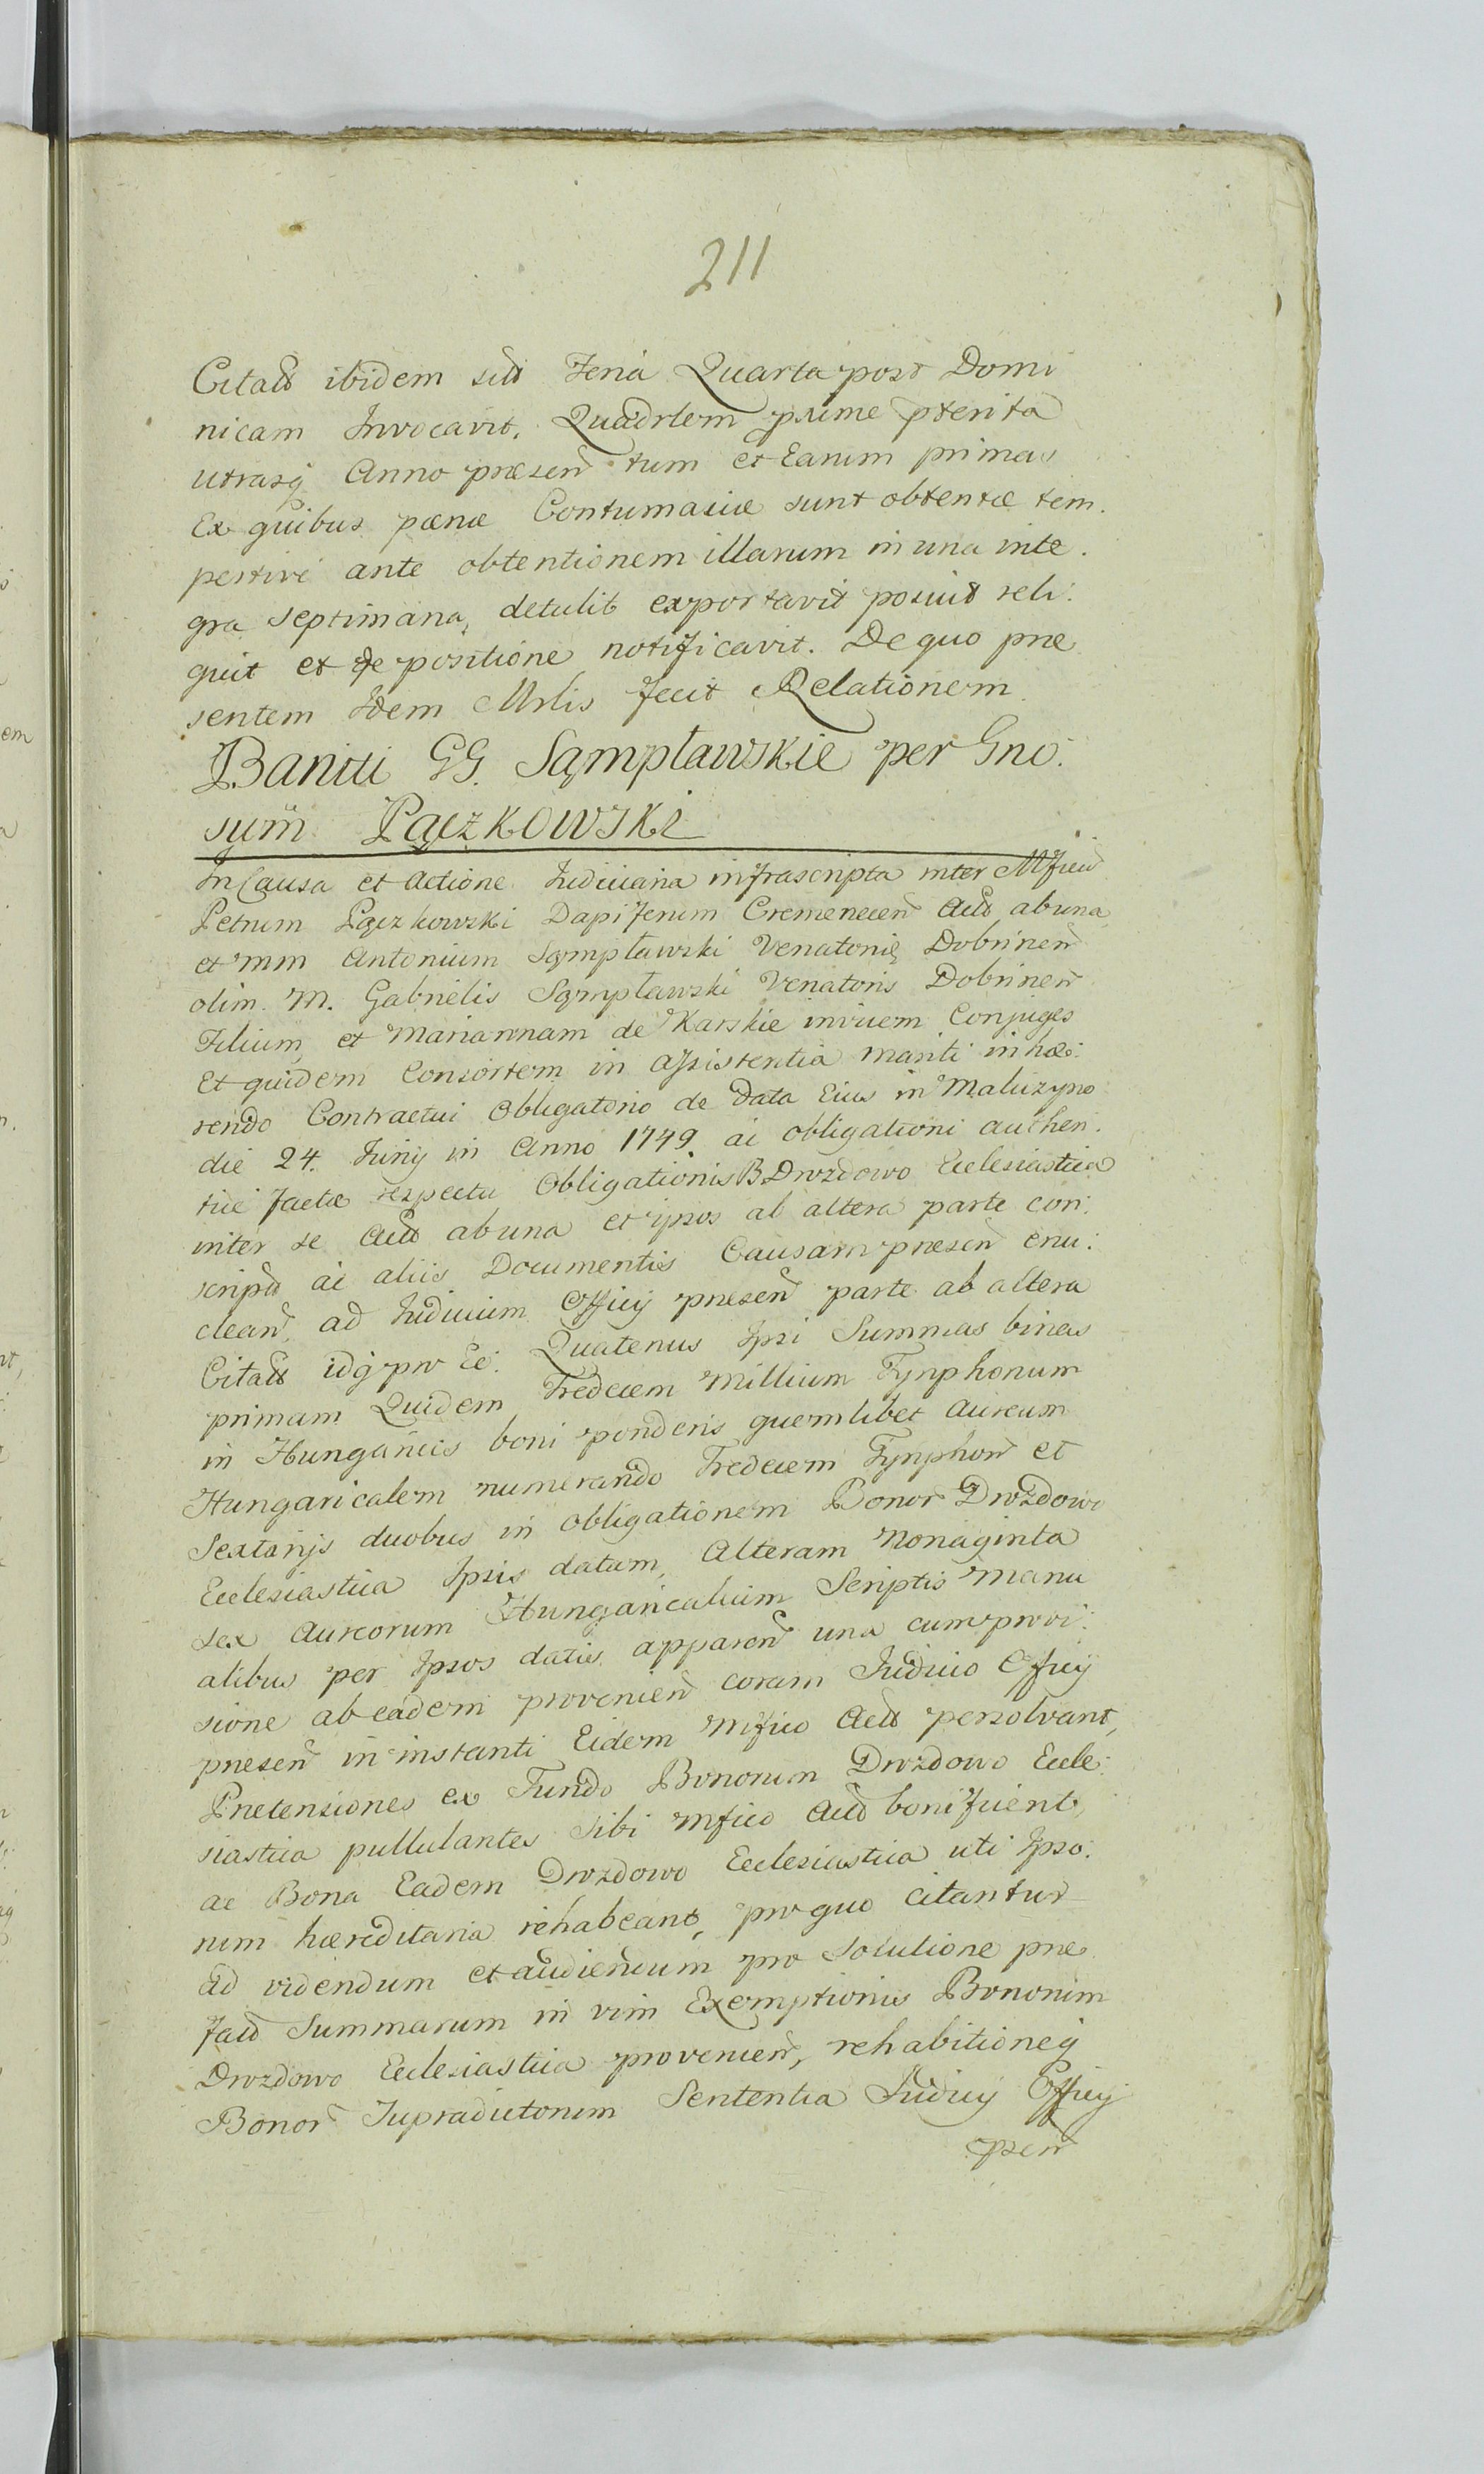 211
Citatt ibidem sitt Feria Quarta post Domi
nicam Invocavit, Quadrlem pxime pterita
utrasq Anno præsen tum et Earum primas
Ex quibus pœnæ Contumaciæ sunt obtentæ tem.
pestive ante obtentionem illarum in una inte.
gra septimana, detulit exportavit posuit reli:
quit et de positione notificavit. De quo præ
sentem Idem Mrlis fecit Relationem
Baniti GG. Sąmpławskie per Gno.
sum Pączkowski
In Causa et Actione Judiciaria infrascripta inter Mficũ
Petrum Pączkowski Dapiferum Cremenecen Actt ab una
et mm Antonium Sąmpławski Venatorię Dobrinen
olim M. Gabrielis Sąmpławski Venatoris Dobrinen
Filium, et Mariannam de Karskie invicem Conjuges
Et quidem Consortem in Assistentia mariti inhæ:
rendo Contractui Obligatorio de data Eius in Maluzyno
die 24. Junij in Anno 1749. ac obligationi authen.
ticæ factæ respectu Obligationis B. Drozdowo Ecclesiastica
inter se Actt ab una et ipsos ab altera parte con:
script ac aliis Documentis Causam præsen enu:
clean, ad Judicium Officij præsen parte ab altera
Citatt idq pro Eo. Quatenus Ipsi Summas binas
primam Quidem Tredecem Millium Tynphonum
in Hungaricis boni ponderis quemlibet Aureum
Hungaricalem numerando Tredecem Tynphon et
Sextarijs duobus in obligationem Bonor Drozdowo
Ecclesiastica Ipsis datam, Alteram Nonaginta
sex Aureorum Hungaricalium Scriptis Manu
alibus per Ipsos datis apparen una cum provi:
sione ab eadem provenien coram Judicio Officij
præsen in instanti Eidem Mfico Actt persolvant,
Prætensiones ex Fundo Bonorum Drozdowo Eccle:
siastica pullulantes sibi Mfico Actt bonificent,
ac Bona Eadem Drozdowo Ecclesiastica uti Ipso:
rum hæreditaria rehabeant, pro quo citantur
ad videndum et audiendum pro solutione præ
fatt Summarum in vim Exemptionis Bonorum
Drozdowo Ecclesiastica provenien, rehabitioneq
Bonor Supradictorum Sententia Judicij Officij
psen